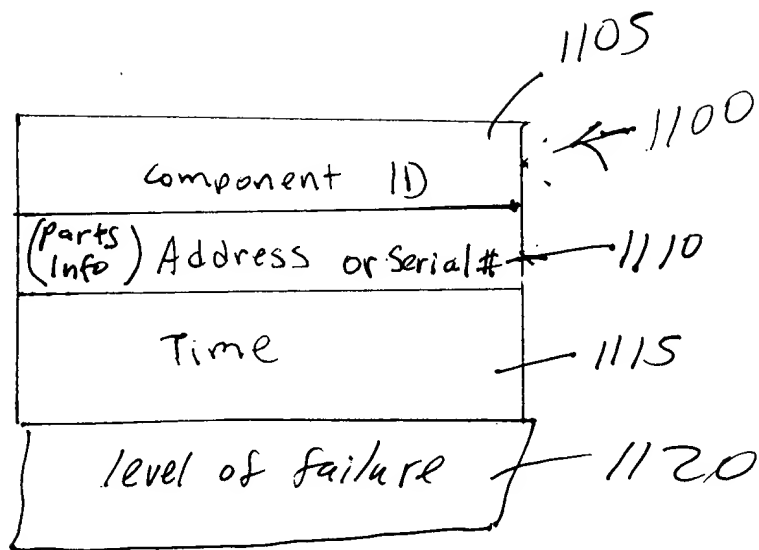 1105
1100
Component ID
(Parts Info) Address or Serial #
1110
Time
1115
level of failure
1120